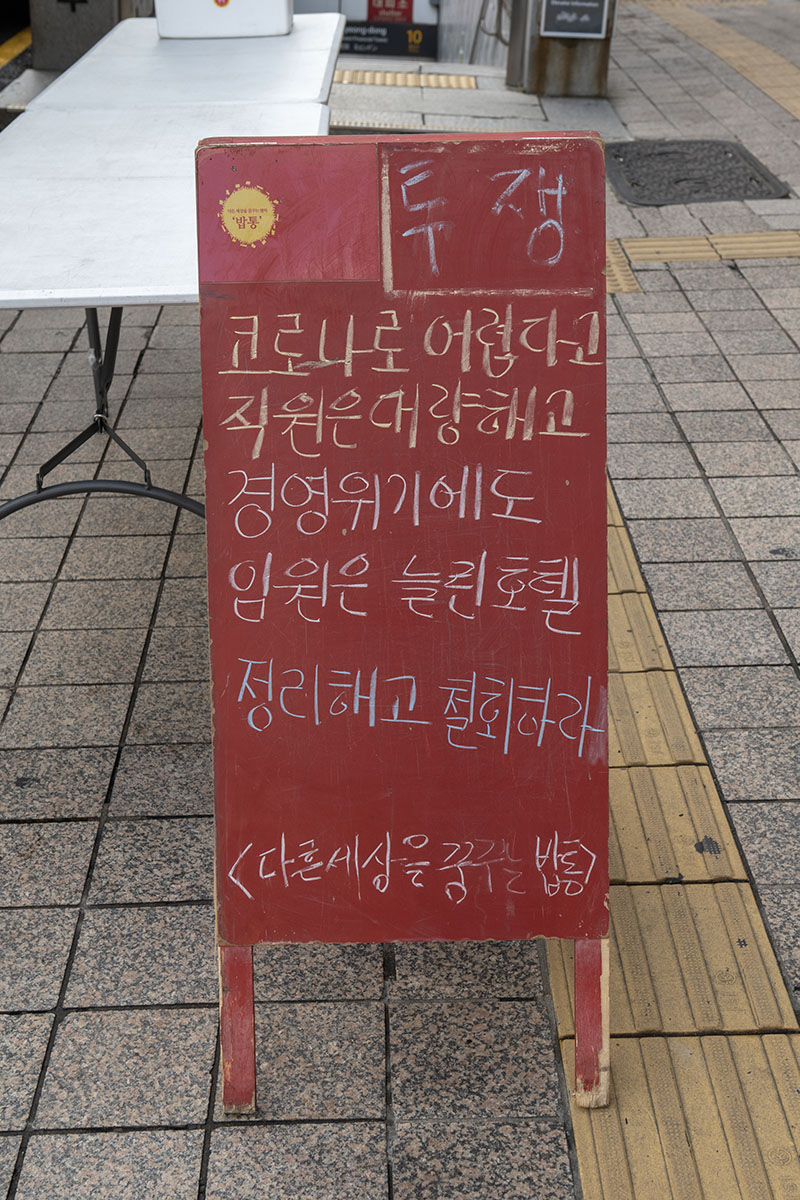 대피소
shelter
10
Elevator Information
다른 세상을 꿈꾸는 밥차
'밥통'
투쟁
코로나로 어렵다고
직원은대량해고
경영위기에도
임원은 늘린호텔
정리해고 철회하라
<다른세상을 꿈꾸는 밥통>